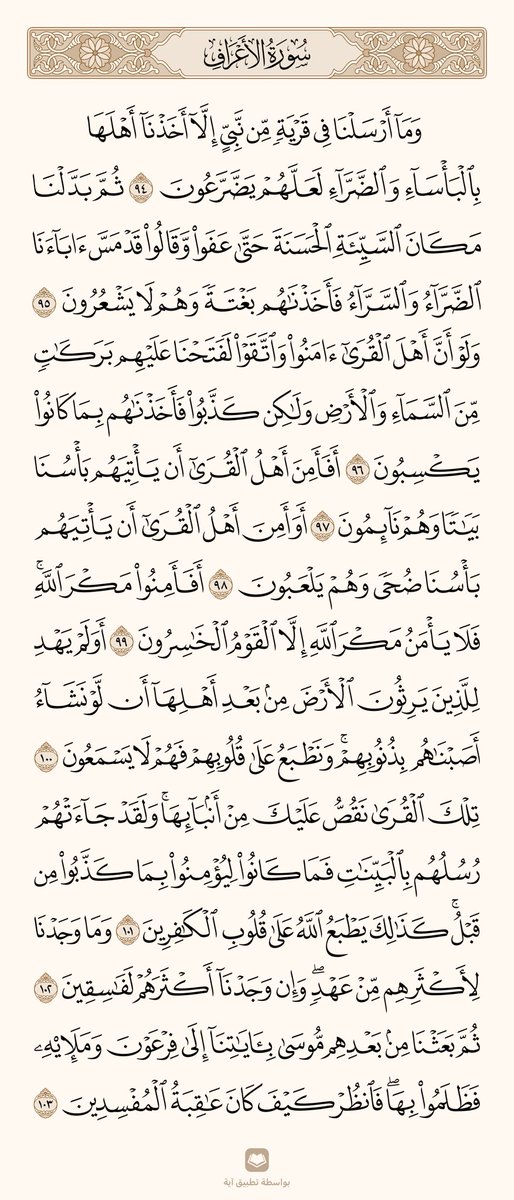 سُورَةُ الأَعْرَافِ
وَمَآ أَرۡسَلۡنَا فِي قَرۡيَةٖ مِّن نَّبِيٍّ إِلَّآ أَخَذۡنَآ أَهۡلَهَا
بِٱلۡبَأۡسَآءِ وَٱلضَّرَّآءِ لَعَلَّهُمۡ يَضَّرَّعُونَ ٩٤ ثُمَّ بَدَّلۡنَا
مَكَانَ ٱلسَّيِّئَةِ ٱلۡحَسَنَةَ حَتَّىٰ عَفَواْ وَّقَالُواْ قَدۡ مَسَّ ءَابَآءَنَا
ٱلضَّرَّآءُ وَٱلسَّرَّآءُ فَأَخَذۡنَٰهُم بَغۡتَةٗ وَهُمۡ لَا يَشۡعُرُونَ ٩٥
وَلَوۡ أَنَّ أَهۡلَ ٱلۡقُرَىٰٓ ءَامَنُواْ وَٱتَّقَوۡاْ لَفَتَحۡنَا عَلَيۡهِم بَرَكَٰتٖ
مِّنَ ٱلسَّمَآءِ وَٱلۡأَرۡضِ وَلَٰكِن كَذَّبُواْ فَأَخَذۡنَٰهُم بِمَا كَانُواْ
يَكۡسِبُونَ ٩٦ أَفَأَمِنَ أَهۡلُ ٱلۡقُرَىٰٓ أَن يَأۡتِيَهُم بَأۡسُنَا
بَيَٰتٗا وَهُمۡ نَآئِمُونَ ٩٧ أَوَأَمِنَ أَهۡلُ ٱلۡقُرَىٰٓ أَن يَأۡتِيَهُم
بَأۡسُنَا ضُحٗى وَهُمۡ يَلۡعَبُونَ ٩٨ أَفَأَمِنُواْ مَكۡرَ ٱللَّهِۚ
فَلَا يَأۡمَنُ مَكۡرَ ٱللَّهِ إِلَّا ٱلۡقَوۡمُ ٱلۡخَٰسِرُونَ ٩٩ أَوَلَمۡ يَهۡدِ
لِلَّذِينَ يَرِثُونَ ٱلۡأَرۡضَ مِنۢ بَعۡدِ أَهۡلِهَآ أَن لَّوۡ نَشَآءُ
أَصَبۡنَٰهُم بِذُنُوبِهِمۡۚ وَنَطۡبَعُ عَلَىٰ قُلُوبِهِمۡ فَهُمۡ لَا يَسۡمَعُونَ ١٠٠
تِلۡكَ ٱلۡقُرَىٰ نَقُصُّ عَلَيۡكَ مِنۡ أَنۢبَآئِهَاۚ وَلَقَدۡ جَآءَتۡهُمۡ
رُسُلُهُم بِٱلۡبَيِّنَٰتِ فَمَا كَانُواْ لِيُؤۡمِنُواْ بِمَا كَذَّبُواْ مِن
قَبۡلُۚ كَذَٰلِكَ يَطۡبَعُ ٱللَّهُ عَلَىٰ قُلُوبِ ٱلۡكَٰفِرِينَ ١٠١ وَمَا وَجَدۡنَا
لِأَكۡثَرِهِم مِّنۡ عَهۡدٖۖ وَإِن وَجَدۡنَآ أَكۡثَرَهُمۡ لَفَٰسِقِينَ ١٠٢
ثُمَّ بَعَثۡنَا مِنۢ بَعۡدِهِم مُّوسَىٰ بِـَٔايَٰتِنَآ إِلَىٰ فِرۡعَوۡنَ وَمَلَإِيْهِۦ
فَظَلَمُواْ بِهَاۖ فَٱنظُرۡ كَيۡفَ كَانَ عَٰقِبَةُ ٱلۡمُفۡسِدِينَ ١٠٣
بواسطة تطبيق آية